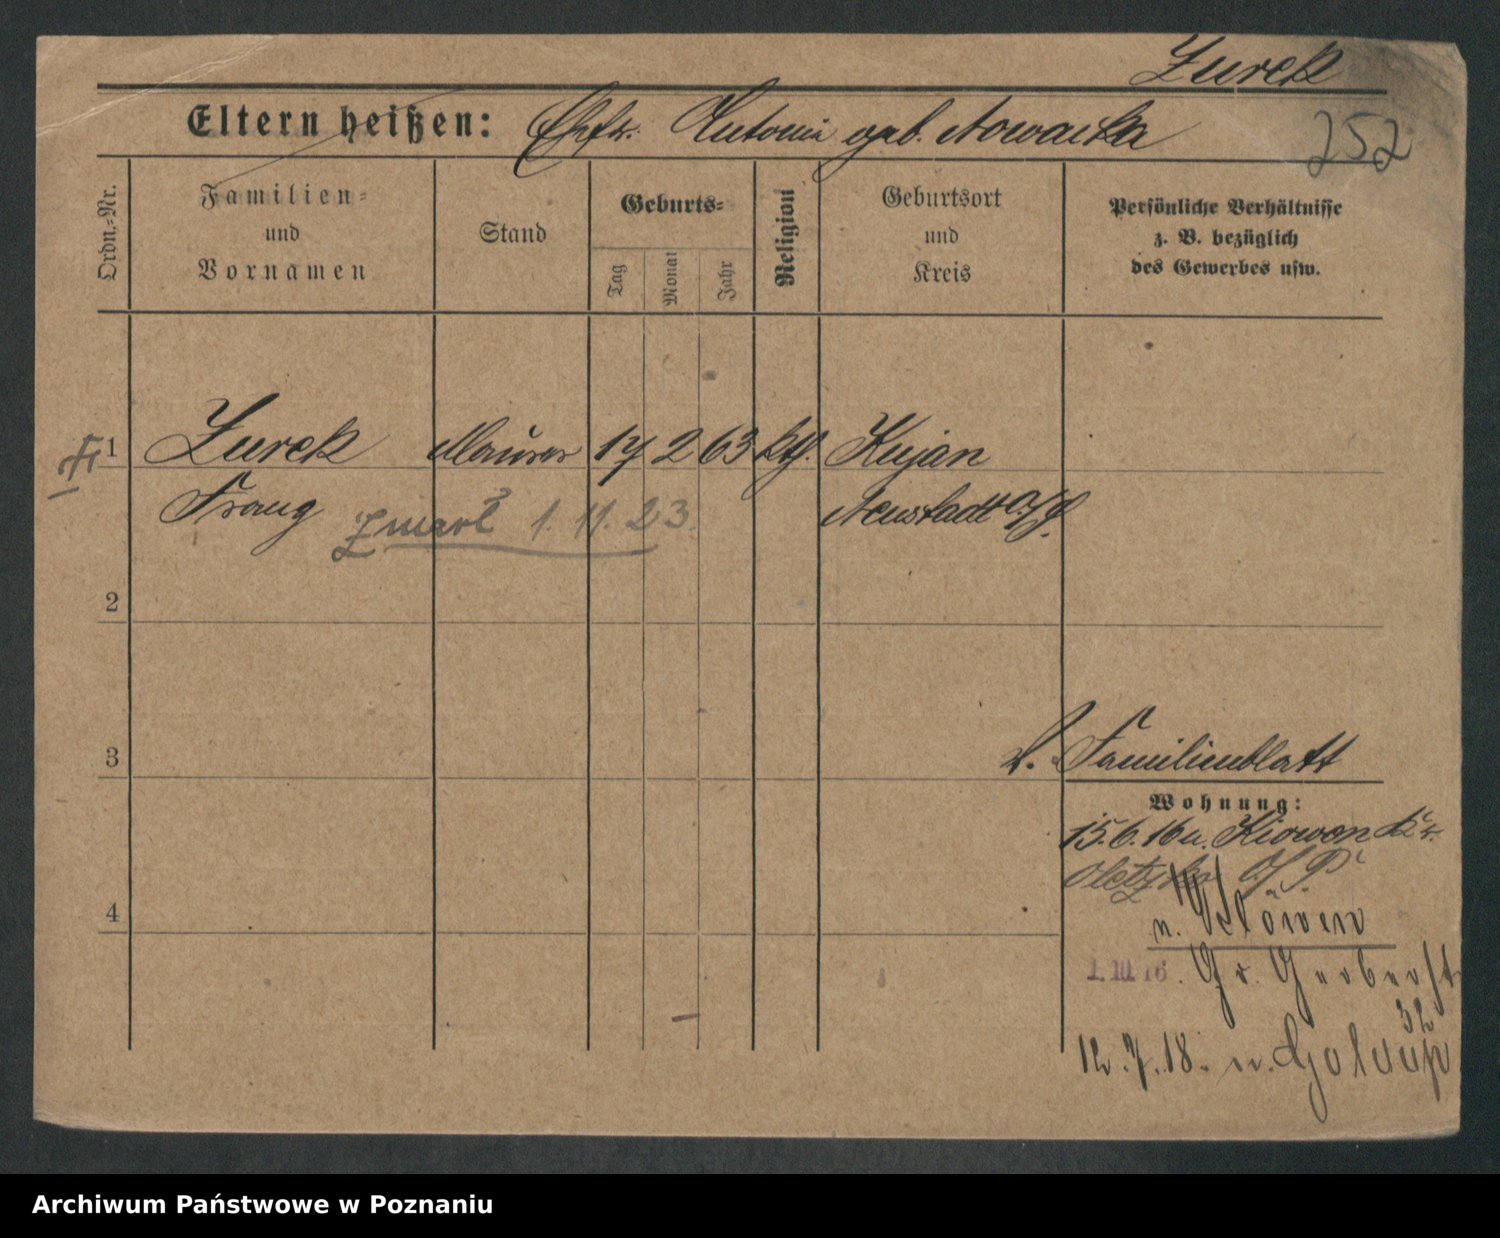 Zurek
Eltern heißen: Ehefr. Antonie geb. Nowacka
252
Ordn.=Nr.
Familien=
und
Vornamen
Stand
Geburts=
Tag
Monat
Jahr
Religion
Geburtsort
und
Kreis
Persönliche Verhältnisse
z. B. bezüglich
des Gewerbes usw.
1 Zurek Maurer 17 2 63 kth. Kujan
Franz Neustadt O/S.
zmarł 1.11.23
2
3
Familienblatt
Wohnung:
15.6.16 n. Kiowen Kr.
Oletzko O/P.
4
n.
1.10.16. Gr. Gerberst
32
12.7.18. n. Goldap
Archiwum Państwowe w Poznaniu